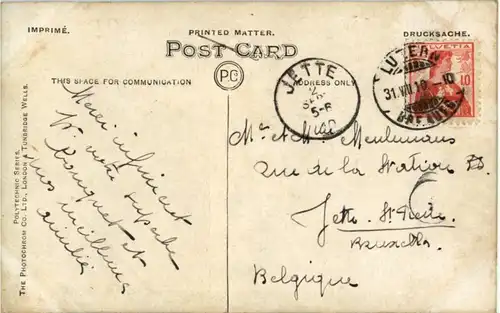 IMPRIMÉ.
PRINTED MATTER.
DRUCKSACHE.
POST CARD
PC
THIS SPACE FOR COMMUNICATION
ADDRESS ONLY
POLYTECHNIC SERIES.
THE PHOTOCHROM CO. LTD., LONDON & TUNBRIDGE WELLS.
JETTE
5-6
LUZERN
31.VIII.10
HELVETIA
10
Merci infiniment
pr votre superbe
bouquet et
nos meilleures
amitiés
Mr et Mme Meulemans
rue de la Station
Jette St Pierre
Bruxelles
Belgique